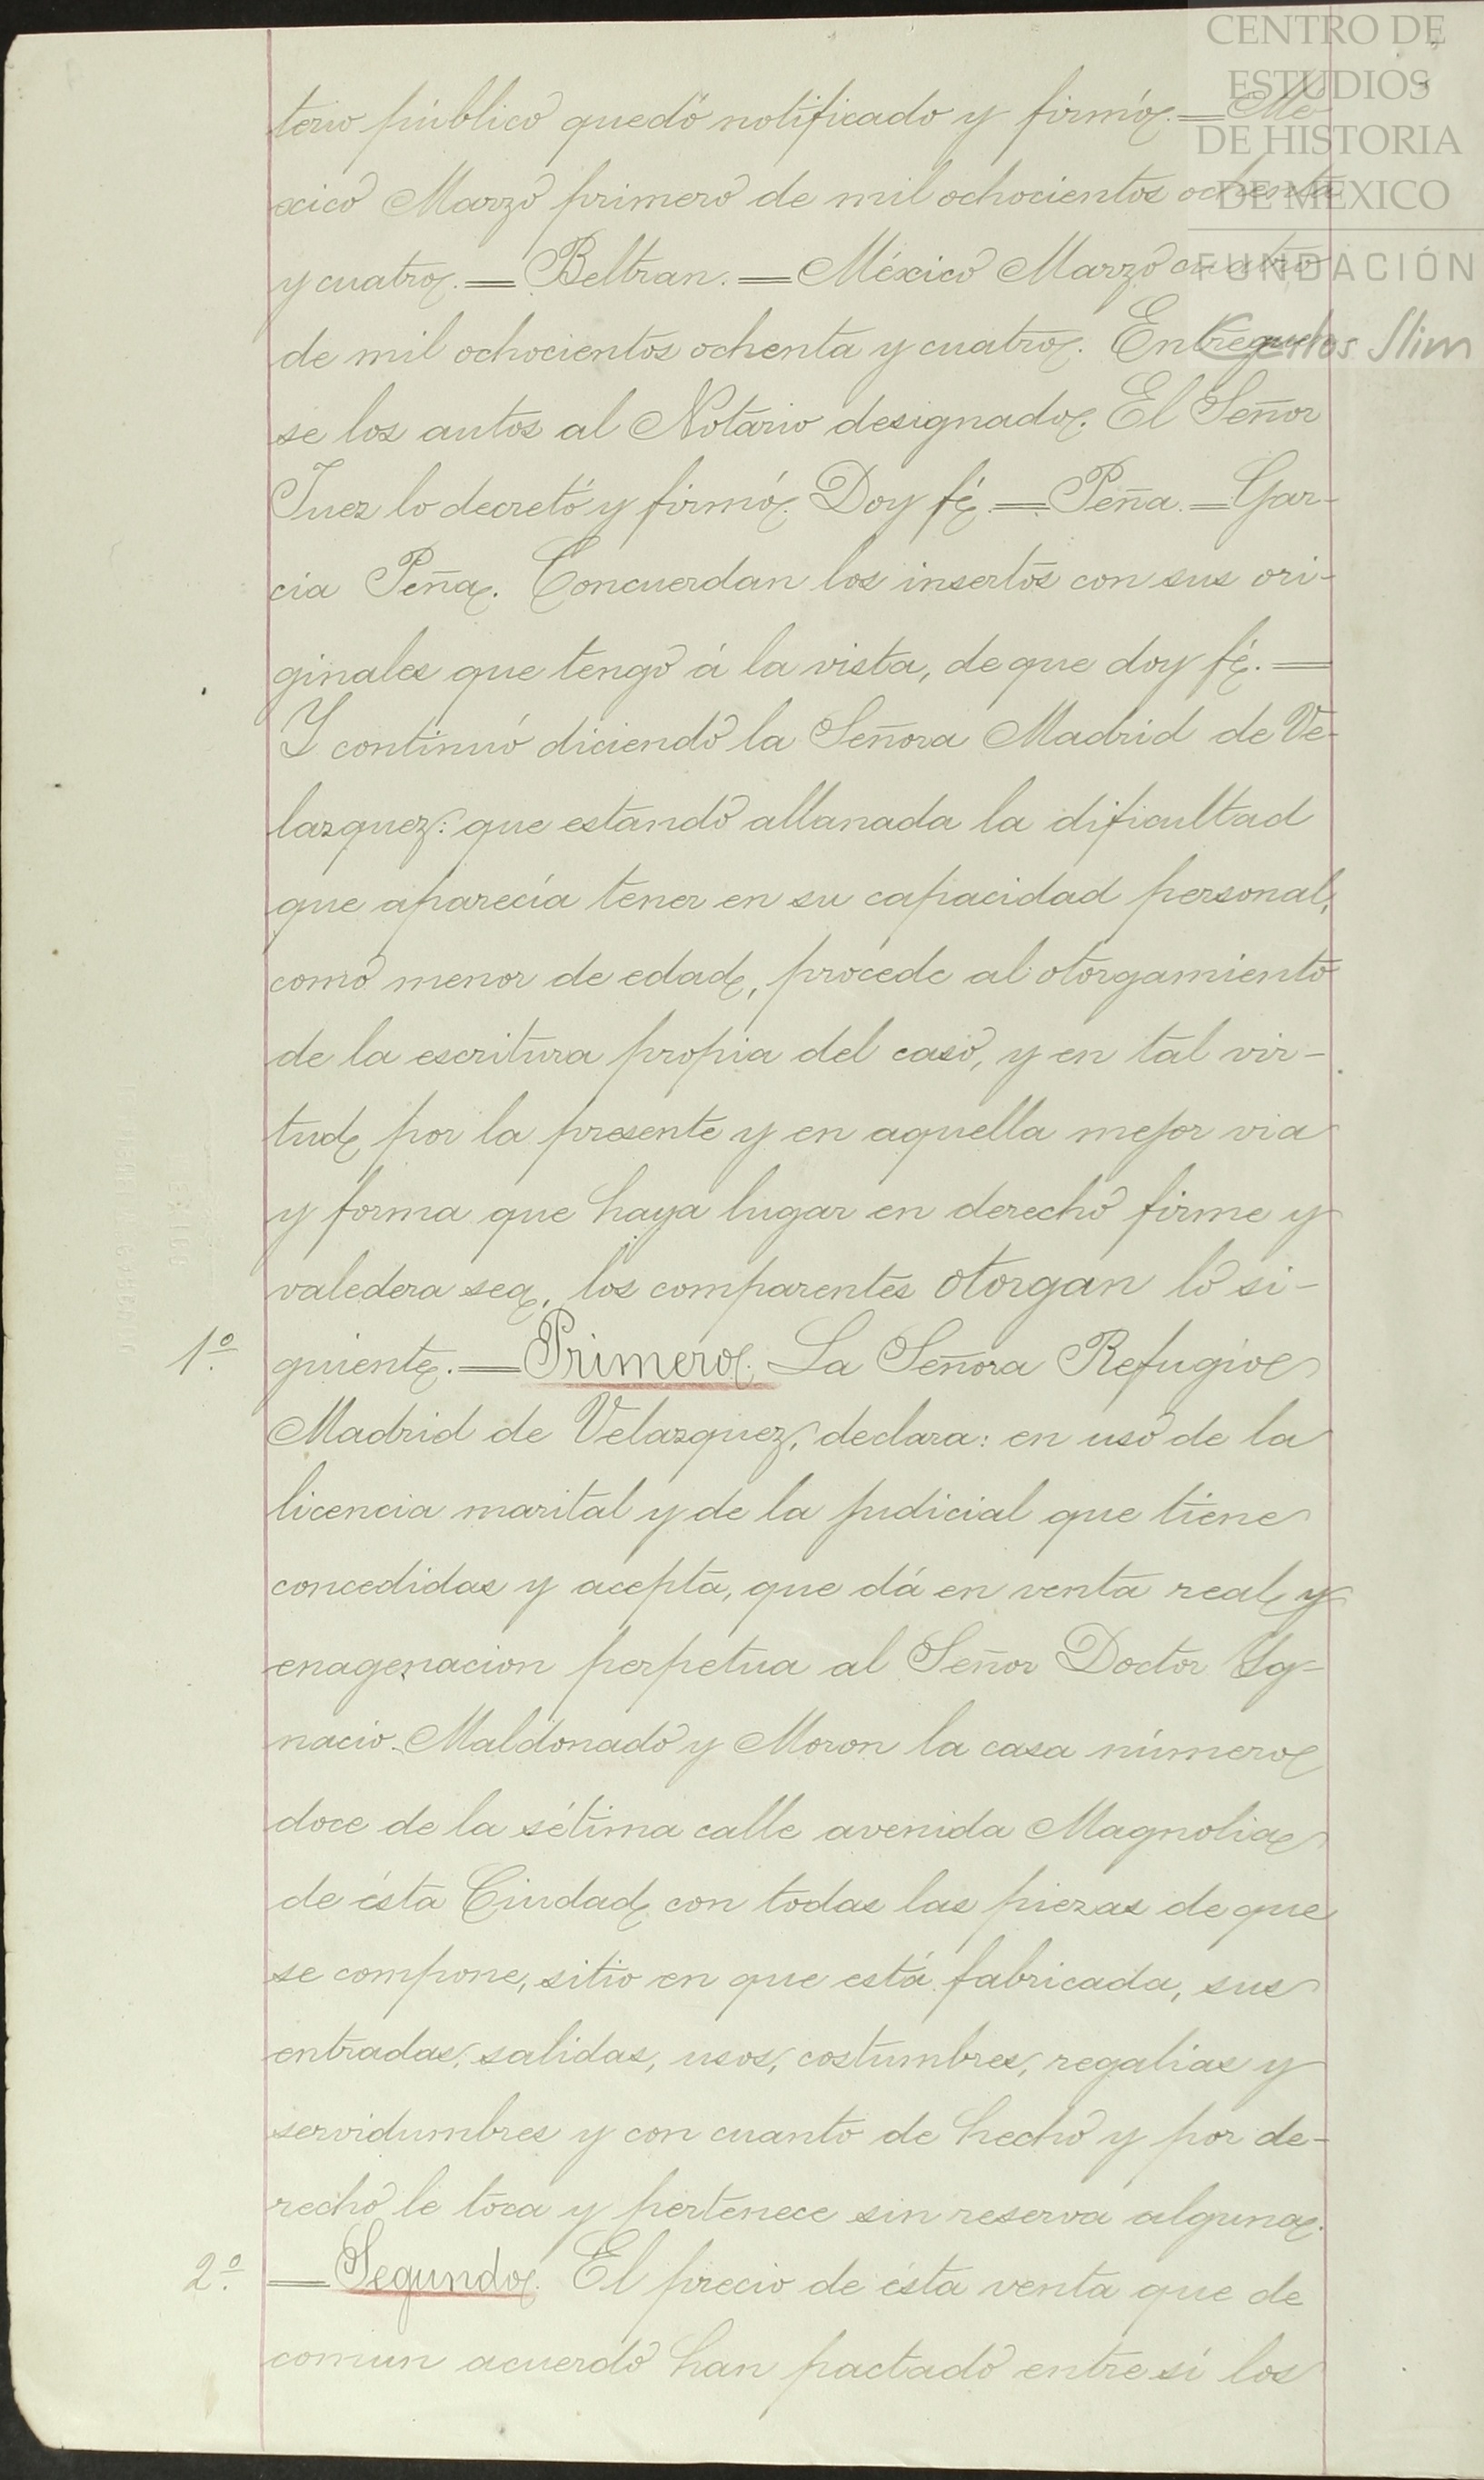 CENTRO DE
ESTUDIOS
DE HISTORIA
DE MÉXICO
FUNDACIÓN
Carlos Slim
terio público quedó notificado y firmó. = Mé-
xico Marzo primero de mil ochocientos ochenta
y cuatro. = Beltran. = México Marzo cuatro
de mil ochocientos ochenta y cuatro. Entreguen
se los autos al Notario designado. El Señor
Juez lo decretó y firmó. Doy fé. = Peña. = Gar-
cia Peña. Concuerdan los insertos con sus ori-
ginales que tengo á la vista, de que doy fé. =
Y continuó diciendo la Señora Madrid de Ve-
lazquez: que estando allanada la dificultad
que aparecía tener en su capacidad personal,
como menor de edad, procede al otorgamiento
de la escritura propia del caso, y en tal vir-
tud por la presente y en aquella mejor via
y forma que haya lugar en derecho firme y
valedera sea, los comparentes otorgan lo si-
1º guiente. = Primero. La Señora Refugio
Madrid de Velazquez, declara: en uso de la
licencia marital y de la judicial que tiene
concedidas y acepta, que dá en venta real y
enagenacion perpetua al Señor Doctor Ig-
nacio Maldonado y Moron la casa número
doce de la sétima calle avenida Magnolia
de ésta Ciudad con todas las piezas de que
se compone, sitio en que está fabricada, sus
entradas, salidas, usos, costumbres, regalias y
servidumbres y con cuanto de hecho y por de-
recho le toca y pertenece sin reserva alguna.
2º = Segundo. El precio de ésta venta que de
comun acuerdo han pactado entre sí los